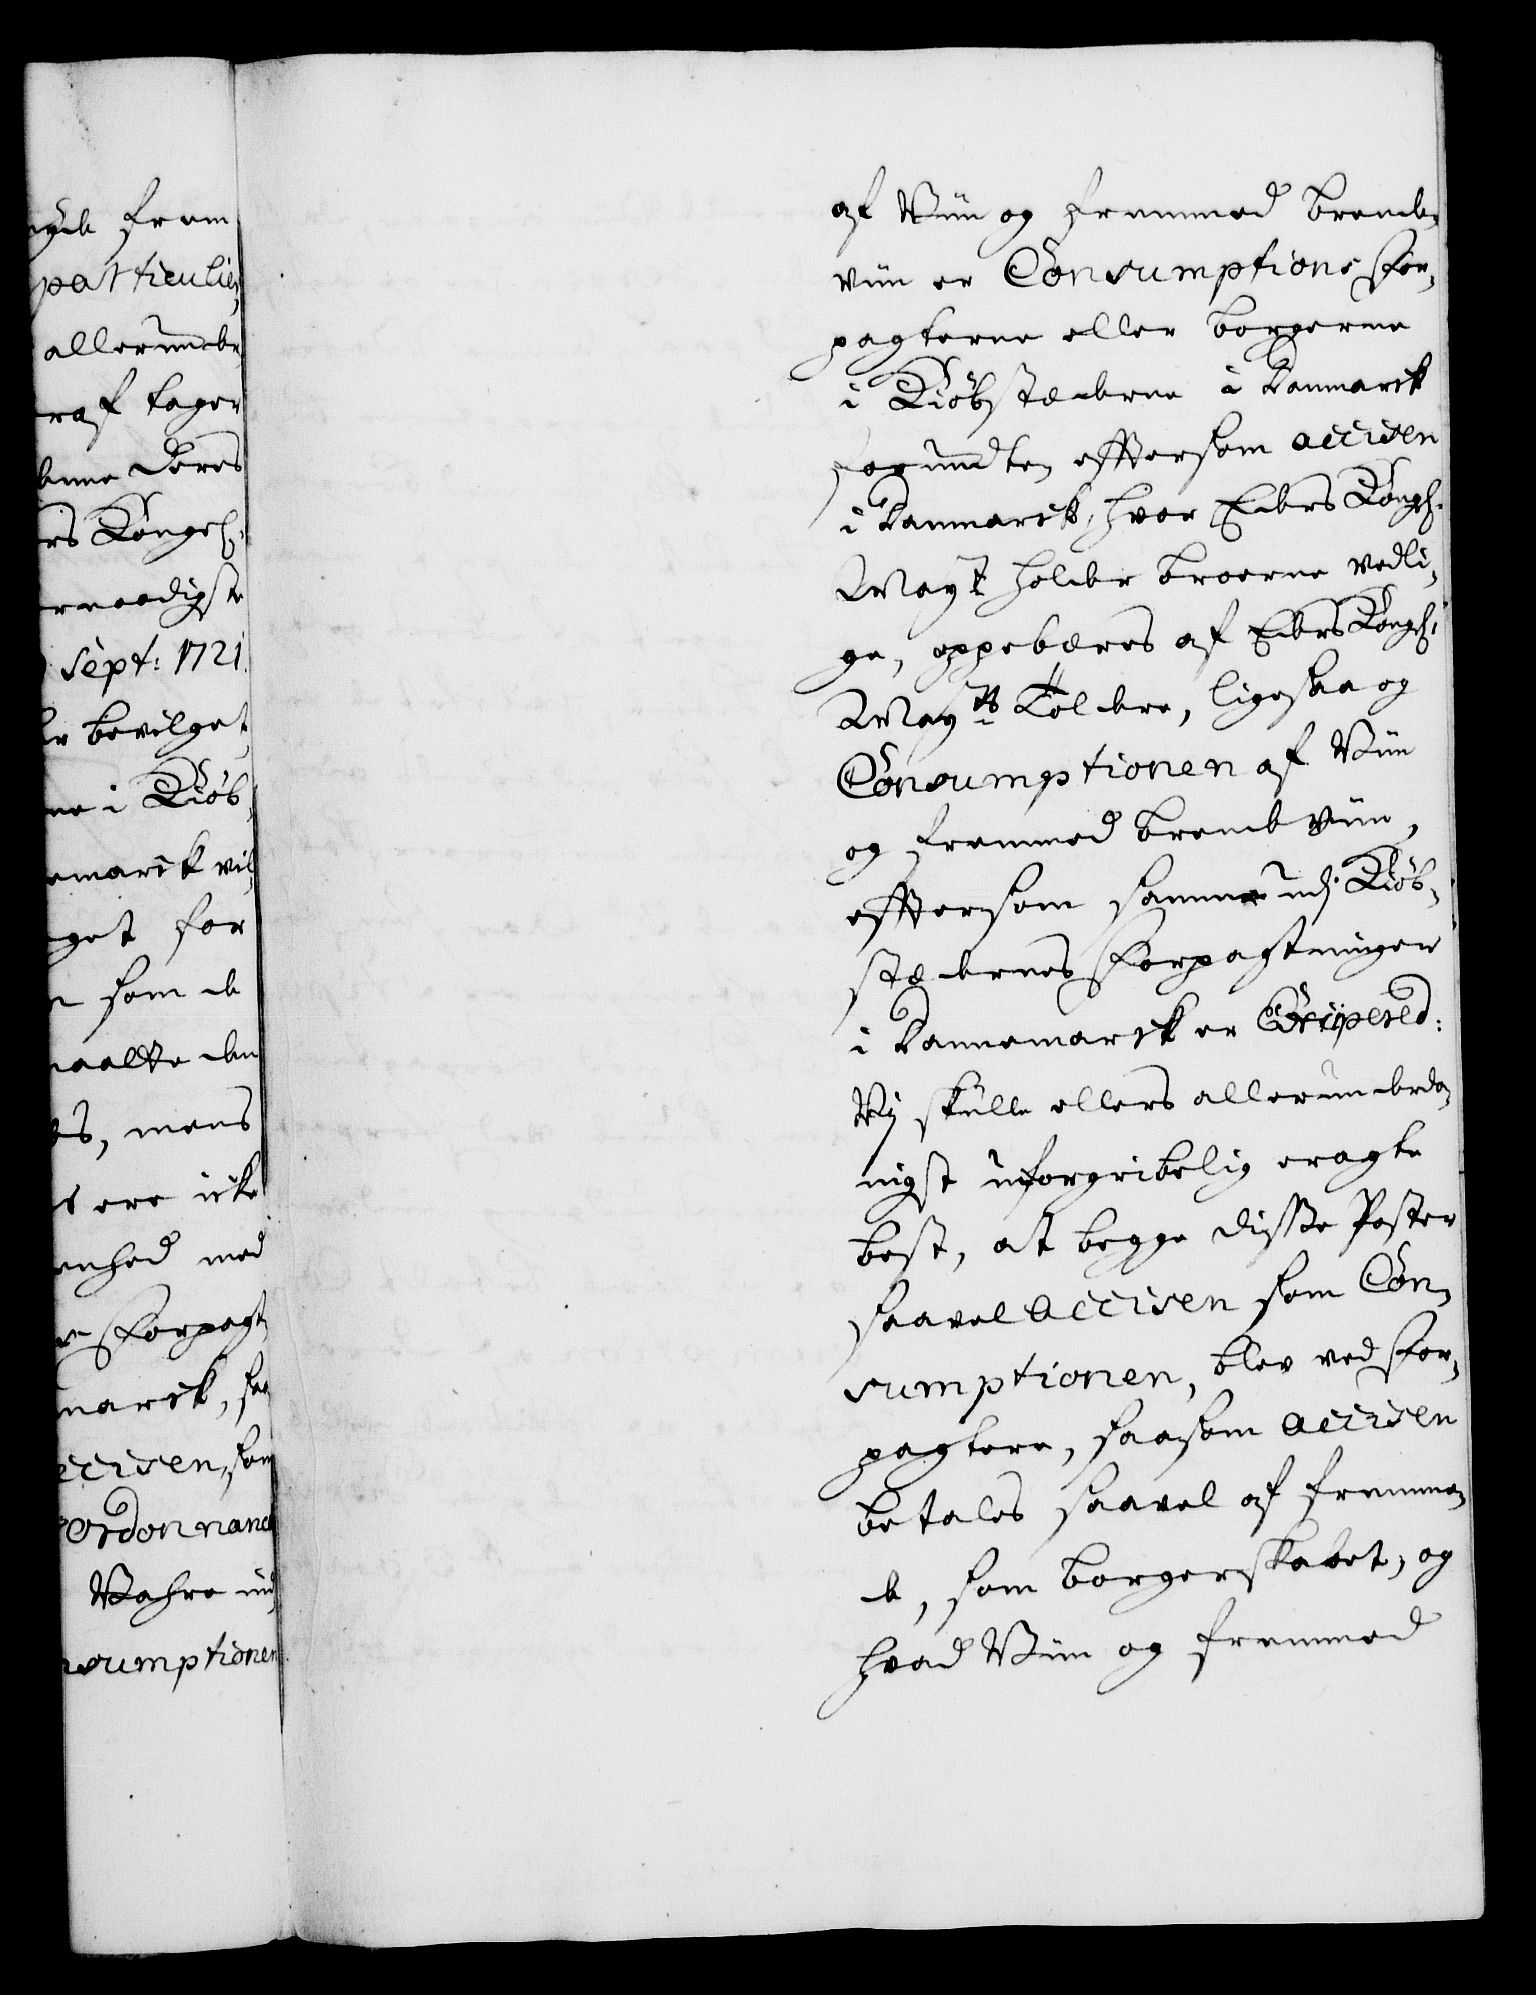 gde frem
particulier
allerunde
raf tager
denne Deres
rs Kongel:
rnaadigste
sept: 1721.
er bevilget
ne i Kiøb
emarck vil
get for
som de
maatte den
es, mens
ere icke
enhed med
Forpagt
marck, saa
ccisen, som
Ordonnance
Wahre ind
nsumptionen
af Viin og fremmed brende-
viin er Consumptions For-
pagterne eller borgerne
i Kiøbstæderne i Danmarck
forundt, efftersom accisen
i Danmarck, hvor Eders Kongl.
Mayt holder broerne vedli-
ge, oppebæres af Eders Kongl:
Mayts Toldere, ligesaa og
Consumptionen af Viin
og fremmed brende Viin,
efftersom samme udj Kiøb-
stædernes Forpagtninger
i Dannemarck er
Vj skulle ellers allerunderda-
nigst uforgribelig eragte
best, at begge disse Poster
saavel accisen som Con-
sumptionen, blev ved For-
pagtere, saasom accisen
betales saavel af fremme-
de, som borgerskabet, og
hvad Viin og fremmed